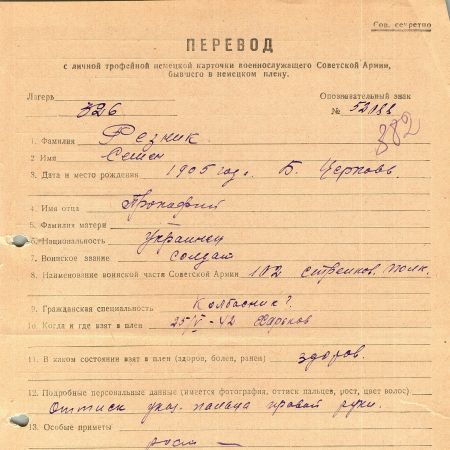 Сов. секретно
ПЕРЕВОД
с личной трофейной немецкой карточки военнослужащего Советской Армии,
бывшего в немецком плену.
Лагерь Опознавательный знак
326 №
882
1. Фамилия Резник.
2 Имя Семен
3. Дата и место рождения 1905 год. Б. Церковь
4. Имя отца Прокофий
5. Фамилия матери —
6. Национальность Украинец
7. Воинское звание солдат
8. Наименование воинской части Советской Армии 102 стрелков. полк.
9. Гражданская специальность Колбасник?
10. Когда и где взят в плен 25/V-42 Харьков
11. В каком состоянии взят в плен (здоров, болен, ранен) здоров.
12. Подробные персональные данные (имеется фотография, оттиск пальцев, рост, цвет волос)
Оттиск указ. пальца правой руки.
13. Особые приметы
рост —